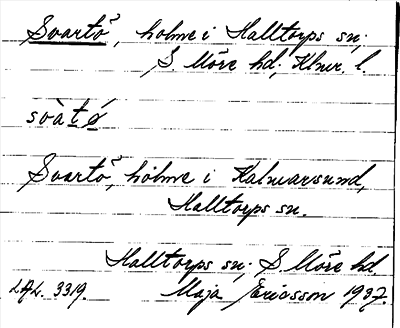 Svartö, holme i Halltorps sn;
S. Möre hd; Klmr. l.
svàtǿ
Svartö, holme i Kalmarsund,
Halltorps sn.
Halltorps sn; S. Möre hd.
LAL. 3319. Maja Ericsson 1937.